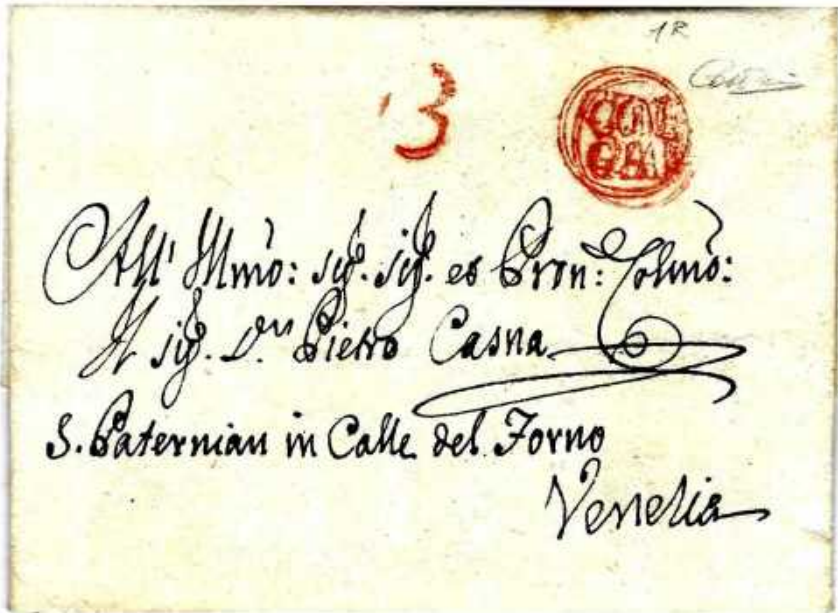 1R
3
VAL
GSA
All' Illmo: sig. sig. es Pron: Colmo:
Il sig. Dn Pietro Casna
S. Paternian in Calle del Forno
Venetia